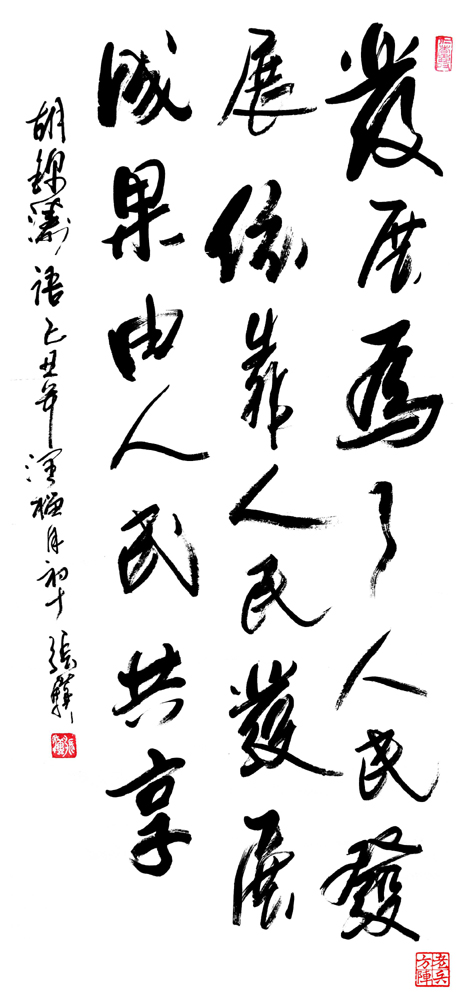 發展爲了人民發
展依靠人民發展
成果由人民共享
胡錦濤語己丑年榴月初十張
老兵方陣